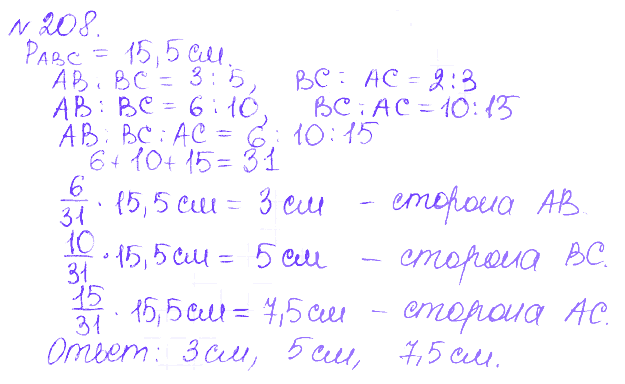 № 208.
P_ABC = 15,5 см.
AB : BC = 3 : 5, BC : AC = 2 : 3
AB : BC = 6 : 10, BC : AC = 10 : 15
AB : BC : AC = 6 : 10 : 15
6 + 10 + 15 = 31
6/31 · 15,5 см = 3 см – сторона AB.
10/31 · 15,5 см = 5 см – сторона BC.
15/31 · 15,5 см = 7,5 см – сторона AC.
Ответ: 3 см, 5 см, 7,5 см.